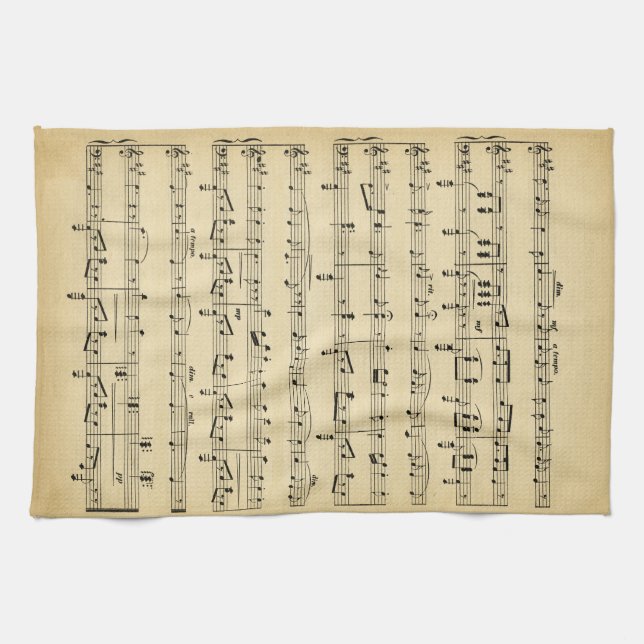 dim. mf a tempo.
mf
rit.
dim.
mp
a tempo. dim. e rall.
pp.